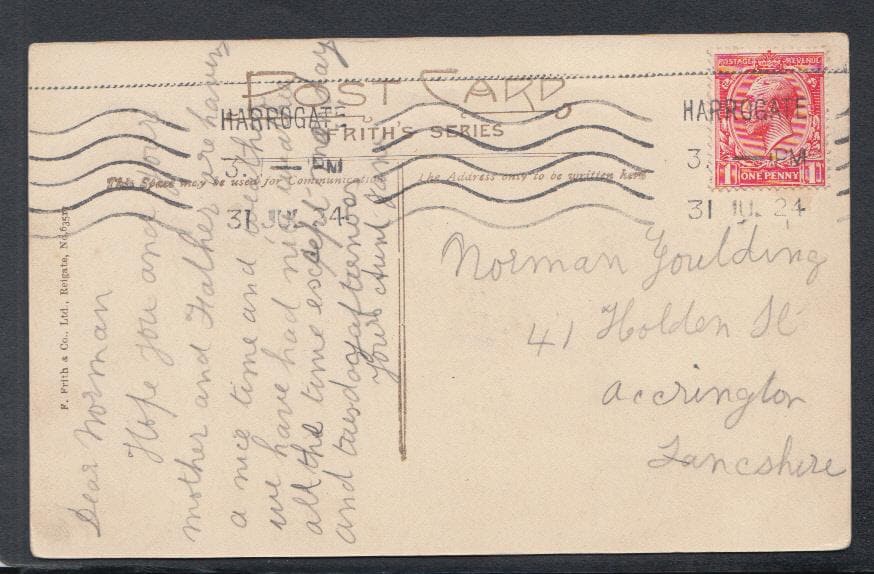 POST CARD
FRITH'S SERIES
This Space may be used for Communication
The Address only to be written here
F. Frith & Co., Ltd., Reigate, No.
HARROGATE
3. — PM
31 JU. 24
HARROGATE
3. — PM
31 JU. 24
POSTAGE REVENUE
1D ONE PENNY 1D
Dear Norman
Hope you and your
mother and Father are having
a nice time and weather
we have had nice
all the time except monday
and tuesday afternoo
yours Aunt
Norman Goulding
41 Holden St
Accrington
Lancshire